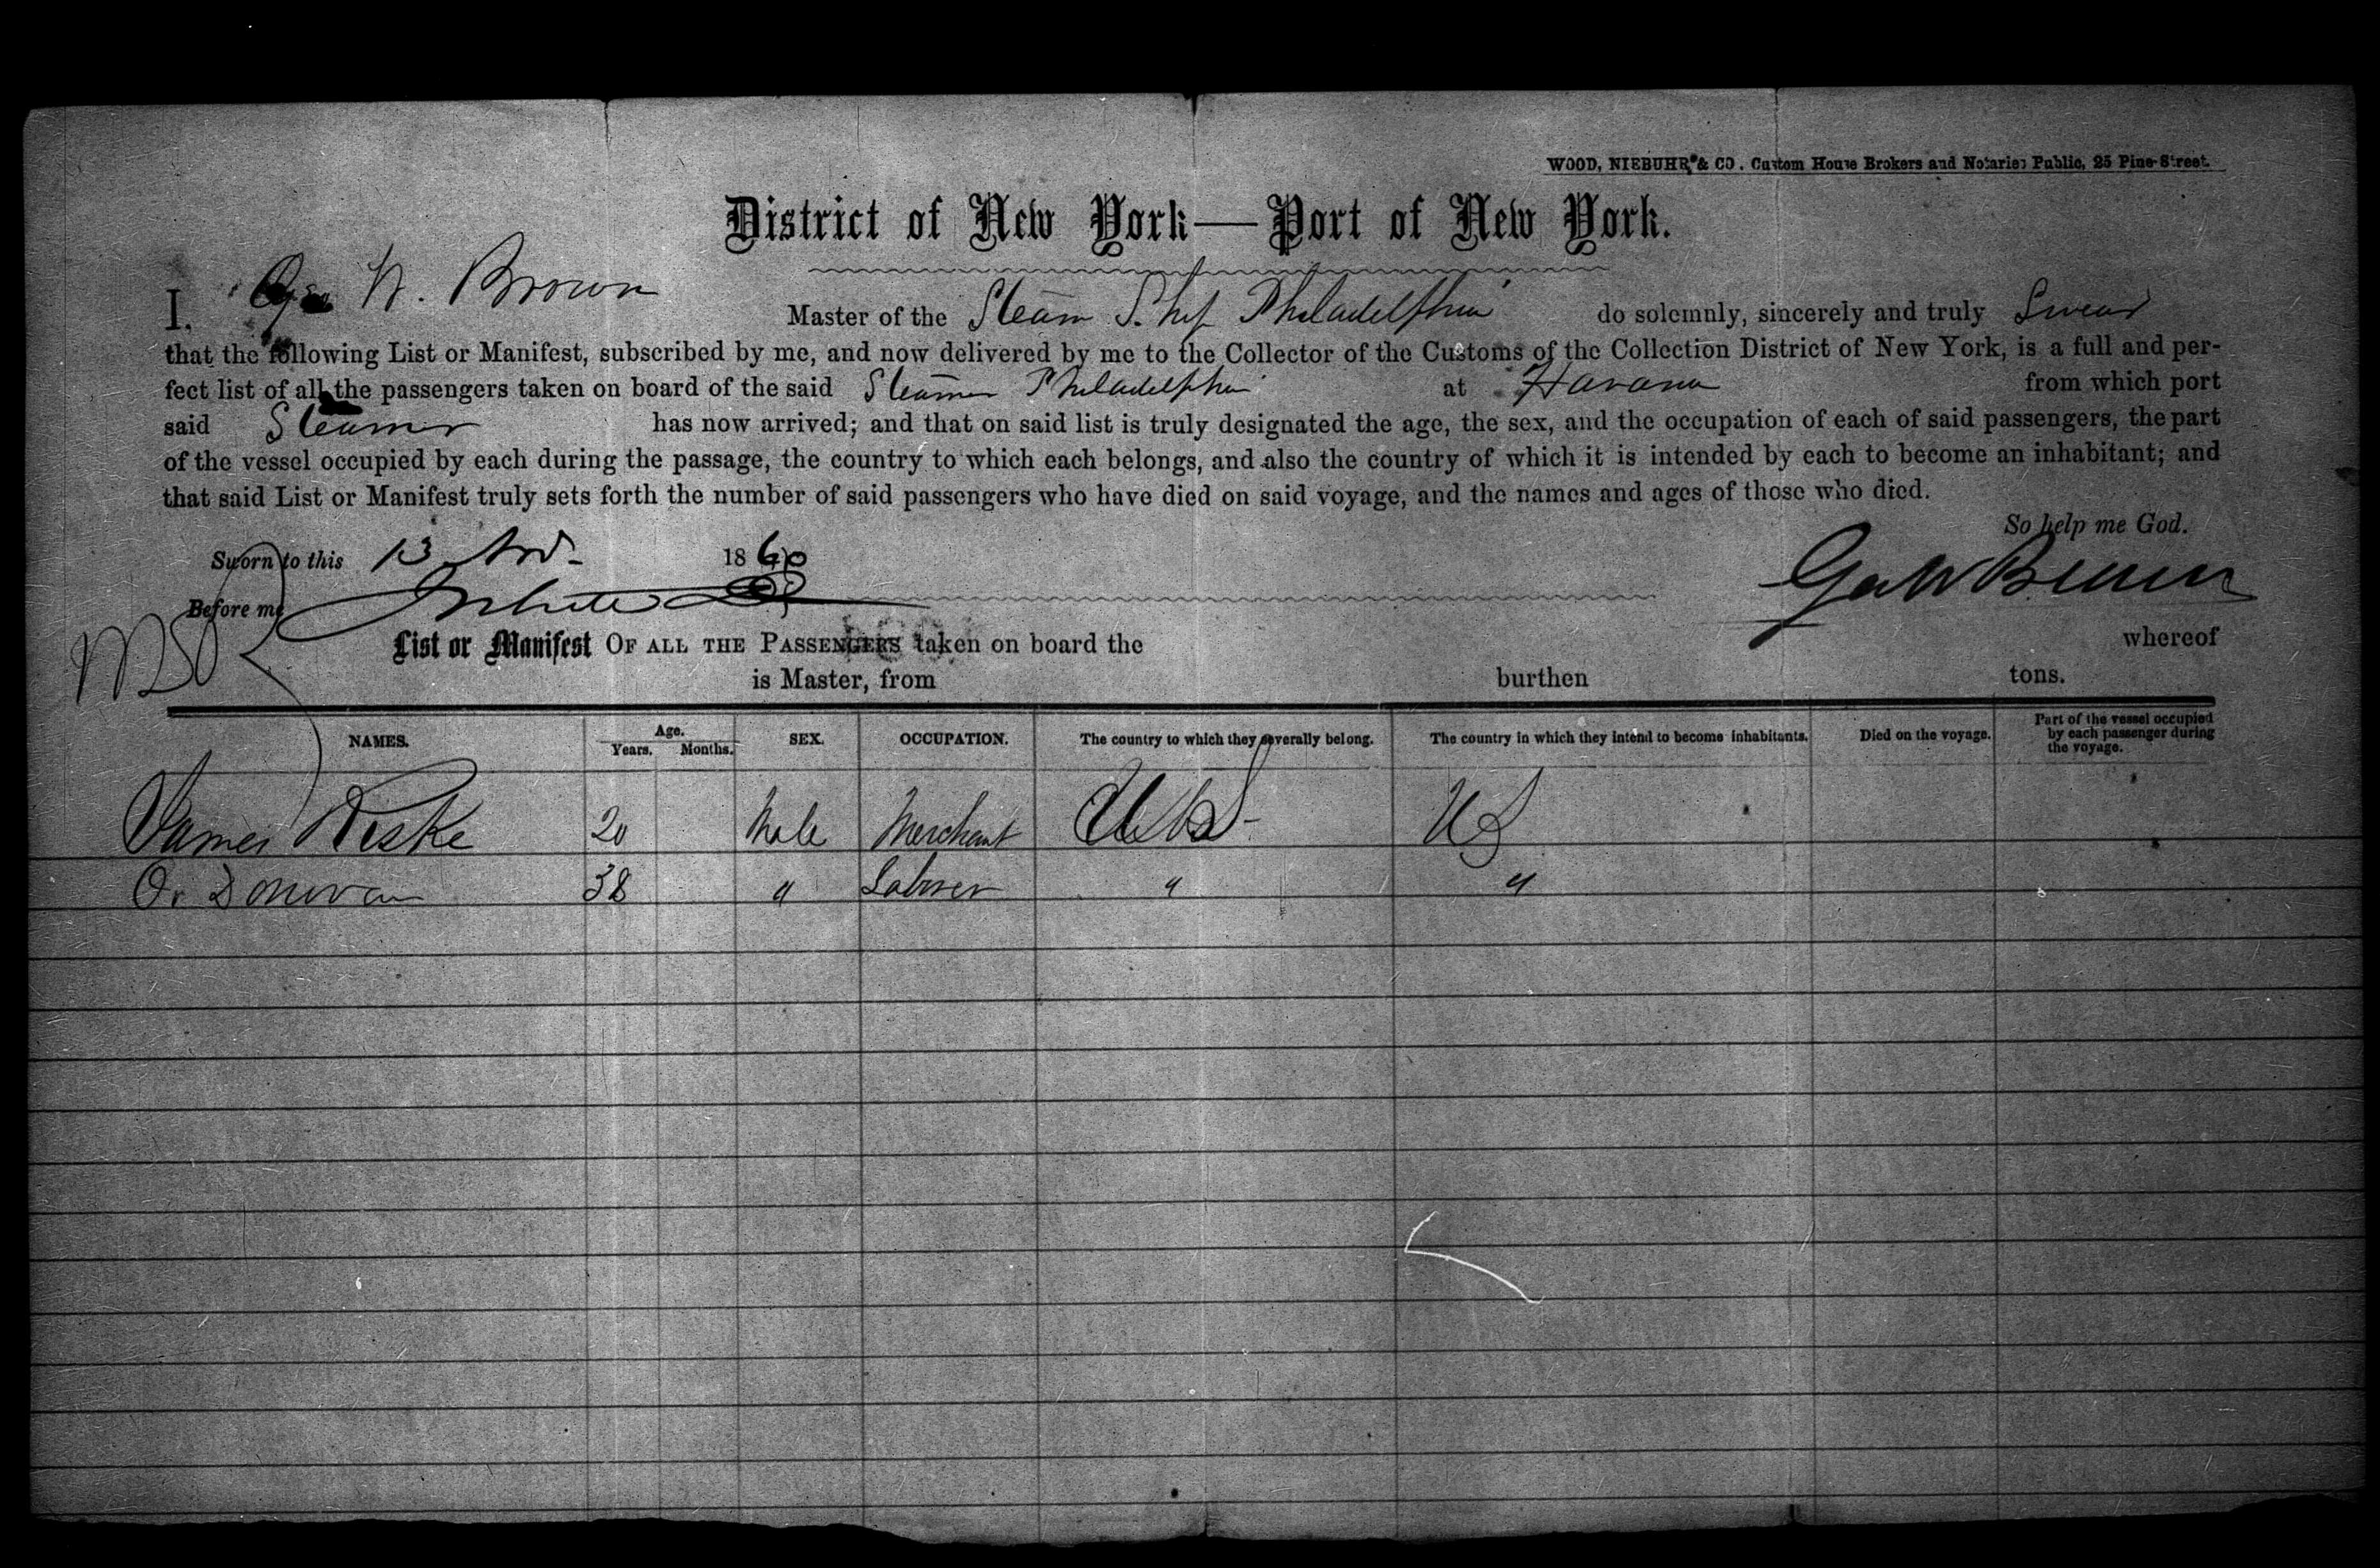 WOOD, NIEBUHR & CO. Custom House Brokers and Notaries Public, 25 Pine-Street.
District of New York—Port of New York.
I, Geo W. Brown Master of the Steam Ship Philadelphia do solemnly, sincerely and truly Swear
that the following List or Manifest, subscribed by me, and now delivered by me to the Collector of the Customs of the Collection District of New York, is a full and per-
fect list of all the passengers taken on board of the said Steamer Philadelphia at Havana from which port
said Steamer has now arrived; and that on said list is truly designated the age, the sex, and the occupation of each of said passengers, the part
of the vessel occupied by each during the passage, the country to which each belongs, and also the country of which it is intended by each to become an inhabitant; and
that said List or Manifest truly sets forth the number of said passengers who have died on said voyage, and the names and ages of those who died.
So help me God.
Sworn to this 13 Nov. 1860
Geo W Brown
Before me
List or Manifest OF ALL THE PASSENGERS taken on board the whereof
is Master, from burthen tons.
NAMES. Age. Years. Months. SEX. OCCUPATION. The country to which they severally belong. The country in which they intend to become inhabitants. Died on the voyage. Part of the vessel occupied by each passenger during the voyage.
James 20 Male Merchant US
Donovan 38 " Laborer " "